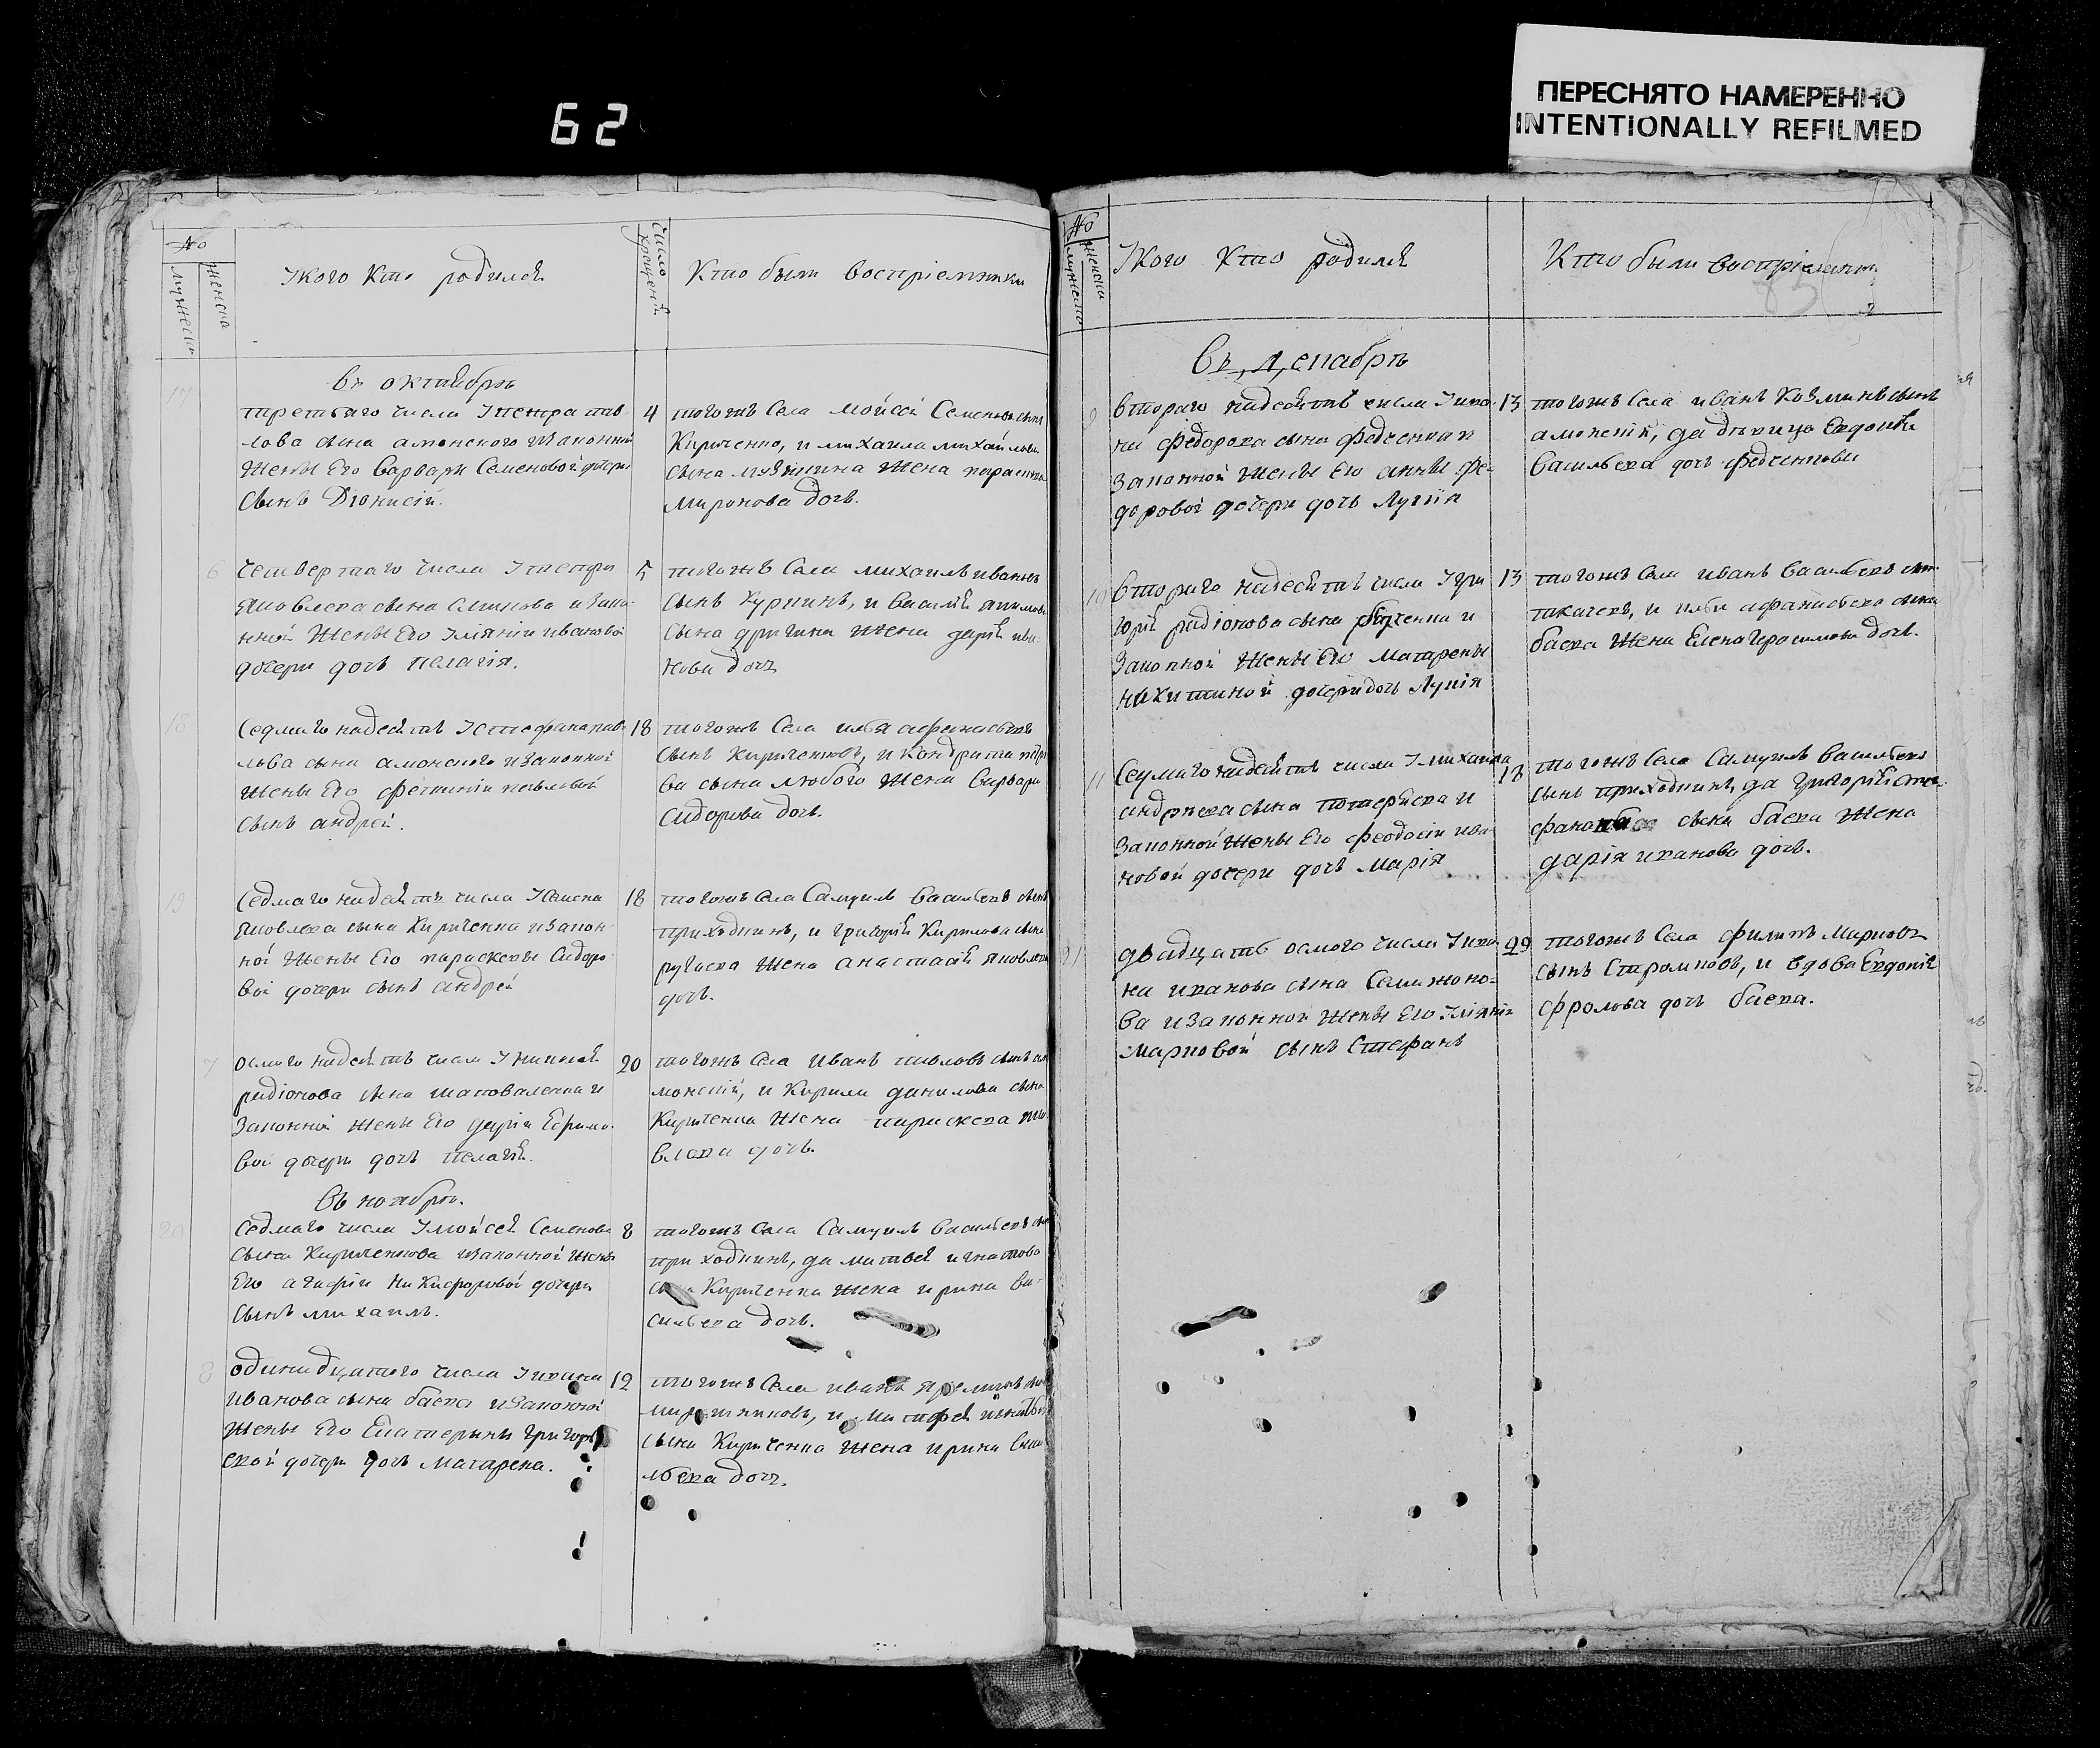 62
ПЕРЕСНЯТО НАМЕРЕННО
INTENTIONALLY REFILMED
№
мужеска
женска
Укого Кто родился
число крещенія
Кто были восприемники
въ октябрѣ
17
третьяго числа У петра пав
лова сына амонского изаконной
жены Его Варвары Семеновой дочери
сынъ Діонисій.
4
тогожъ Села Мойсей Семеновъ сынъ
Кириченко, и михаила михайлова
сына жена параскева
миронова дочь.
6
четвертаго числа У петра
яковлева сына изако
нной жены Его Уліяніи ивановой
дочери дочь пелагія.
5
тогожъ Села михаилъ ивановъ
сынъ Курнинъ, и василія якимова
сына жена дарія ива
нова дочь
18
Седмаго надесять Устефана пав
лова сына амонского изаконной
жены Его фетиніи павловой
сынъ андрей.
18
тогожъ Села илья афанасьевъ
сынъ Кириченковъ, и Кондрата петро
ва сына любого жена варвара
сидорова дочь.
19
Седмаго надесять числа
яковлева сына Кириченка изакон
ной жены Его параскевы Сидоро
вой дочери сынъ андрей
18
тогожъ Села Самуилъ васильевъ сынъ
приходкинъ, и григорія Кирилова сына
жена анастасія яковлева
дочь.
7
осмаго надесять числа
радіонова сына шаповаленка и
Законной жены Его даріи Ефимо
вой дочери дочь пелагія.
20
тогожъ Села Иванъ павловъ сынъ ам
монскій, и Кирила данилова сына
Кириченка жена параскева яко
влева дочь.
въ ноябрѣ.
20
седмаго числа Умойсея Семенова
сына Кириченкова изаконной жены
Его агафіи Никифоровой дочери
сынъ михаилъ.
8
тогожъ Села Самуилъ васильевъ сынъ
приходкинъ, да матвея игнатова
сына Кириченка жена ирина ва
сильева дочь.
8
одинадцатого числа
Иванова сына баева изаконной
жены Его Екатерины григорь
евой дочери дочь Матрена.
12
тогожъ Села иванъ
мирошниковъ, и
сына Кириченка жена ирина васи
льева дочь.
№
мужеска
женска
Укого Кто родился
Кто были восприемники
въ декабрѣ
9
втораго надесять числа
федорова сына федченка и
Законной жены Его анны фе-
доровой дочери дочь Лукія
13
тогожъ Села иванъ Козминъ сынъ
амонскій, да дѣвица Евдокія
васильева дочь федченкова
10
втораго надесять числа Угри
горія радіонова сына и
Законной жены Его Матрены
никитиной дочери дочь Лукія
13
тогожъ Села иванъ васильевъ сынъ
ткачевъ, и ильи афанасьева сына
баева жена Елена Герасимова дочь.
11
Седмаго надесять числа Умихаила
андреева сына и
Законной жены Его феодосіи ива
новой дочери дочь Марія
18
тогожъ Села Самуилъ васильевъ
сынъ приходкинъ, да григорія сте-
фанова сына баева жена
дарія иванова дочь.
21
двадцать осмого числа
на иванова сына
ва изаконной жены Его Уліяніи
марковой сынъ Стефанъ
29
тогожъ Села филипъ Марковъ
сынъ, и вдова Евдокія
фролова дочь баева.